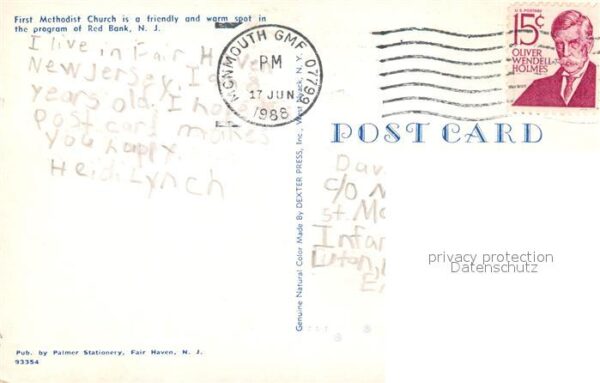 First Methodist Church is a friendly and warm spot in
the program of Red Bank, N. J.
I live in Fair
New Jersey. I
years old. I
Post card makes
you happy.
Heidi Lynch
MONMOUTH GMF 07799
PM
17 JUN
1988
U.S. POSTAGE
15¢
OLIVER
WENDELL
HOLMES
POST CARD
Genuine Natural Color Made By DEXTER PRESS, Inc., West Nyack, N. Y.
Dav
c/o
St. Ma
Infan
Luton,
En
privacy protection
Datenschutz
Pub. by Palmer Stationery, Fair Haven, N. J.
93354